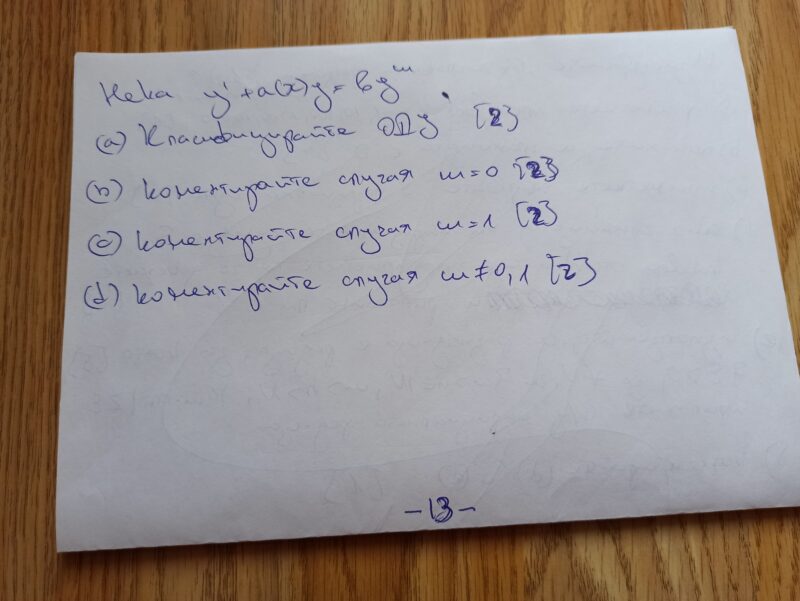 Нека y' + a(x)y = by^m
(a) Класифицирайте ОДУ [2]
(b) коментирайте случая m=0 [2]
(c) коментирайте случая m=1 [2]
(d) коментирайте случая m≠0,1 [2]
-13-